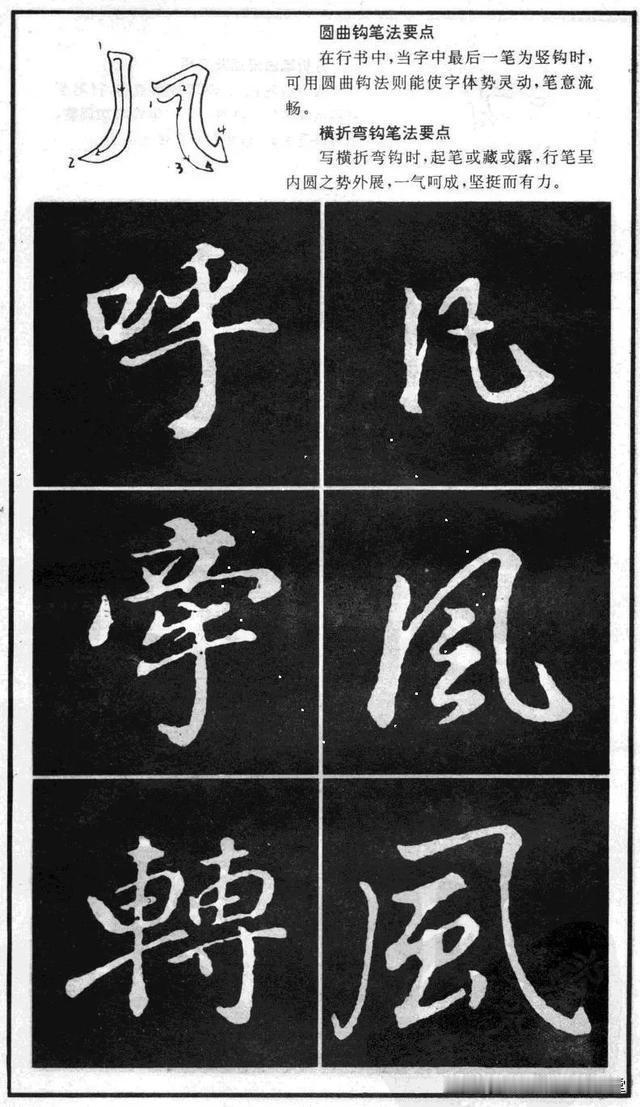 圆曲钩笔法要点
在行书中，当字中最后一笔为竖钩时，
可用圆曲钩法则能使字体势灵动，笔意流
畅。
横折弯钩笔法要点
写横折弯钩时，起笔或藏或露，行笔呈
内圆之势外展，一气呵成，坚挺而有力。
1 2
1 2 3 4
呼 凡
牽 風
轉 風